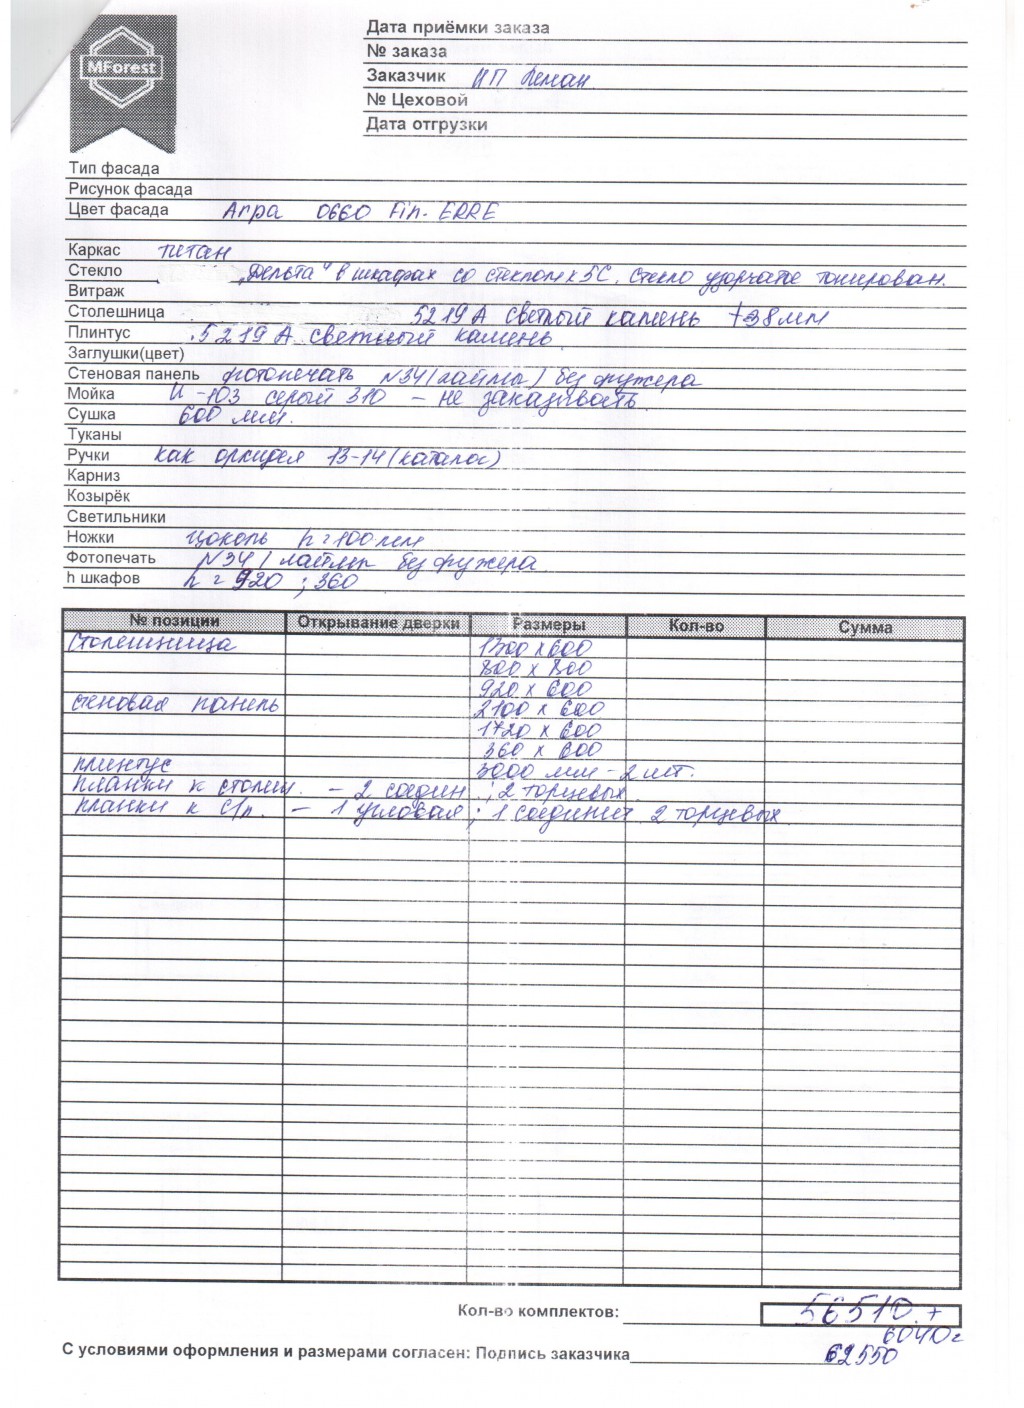 MForest
Дата приёмки заказа
№ заказа
Заказчик ИП Леман
№ Цеховой
Дата отгрузки
Тип фасада
Рисунок фасада
Цвет фасада Arpa 0660 Fin. ERRE
Каркас титан
Стекло „Дельта" в шкафах со стеклом х 5С. Стекло узорчатое тонирован.
Витраж
Столешница 5219А светлый камень 38мм
Плинтус 5219А светлый камень
Заглушки(цвет)
Стеновая панель фотопечать N34 (лаймы) без фужера
Мойка И-103 серый 310 – не заказывать
Сушка 600 мм.
Туканы
Ручки как орхидея 13-14 (каталог)
Карниз
Козырёк
Светильники
Ножки Цоколь h=100мм
Фотопечать N34 / лаймы без фужера
h шкафов h = 920 ; 360
№ позиции Открывание дверки Размеры Кол-во Сумма
Столешница 1300 х 600
800 х 800
920 х 600
стеновая панель 2100 х 600
1720 х 600
360 х 600
плинтус 3000 мм – 2 шт.
планки к столеш. – 2 соедин. ; 2 торцевых
планки к С/п. – 1 угловая ; 1 соединит 2 торцевых
Кол-во комплектов: 56510 +
6040 =
С условиями оформления и размерами согласен: Подпись заказчика 62550